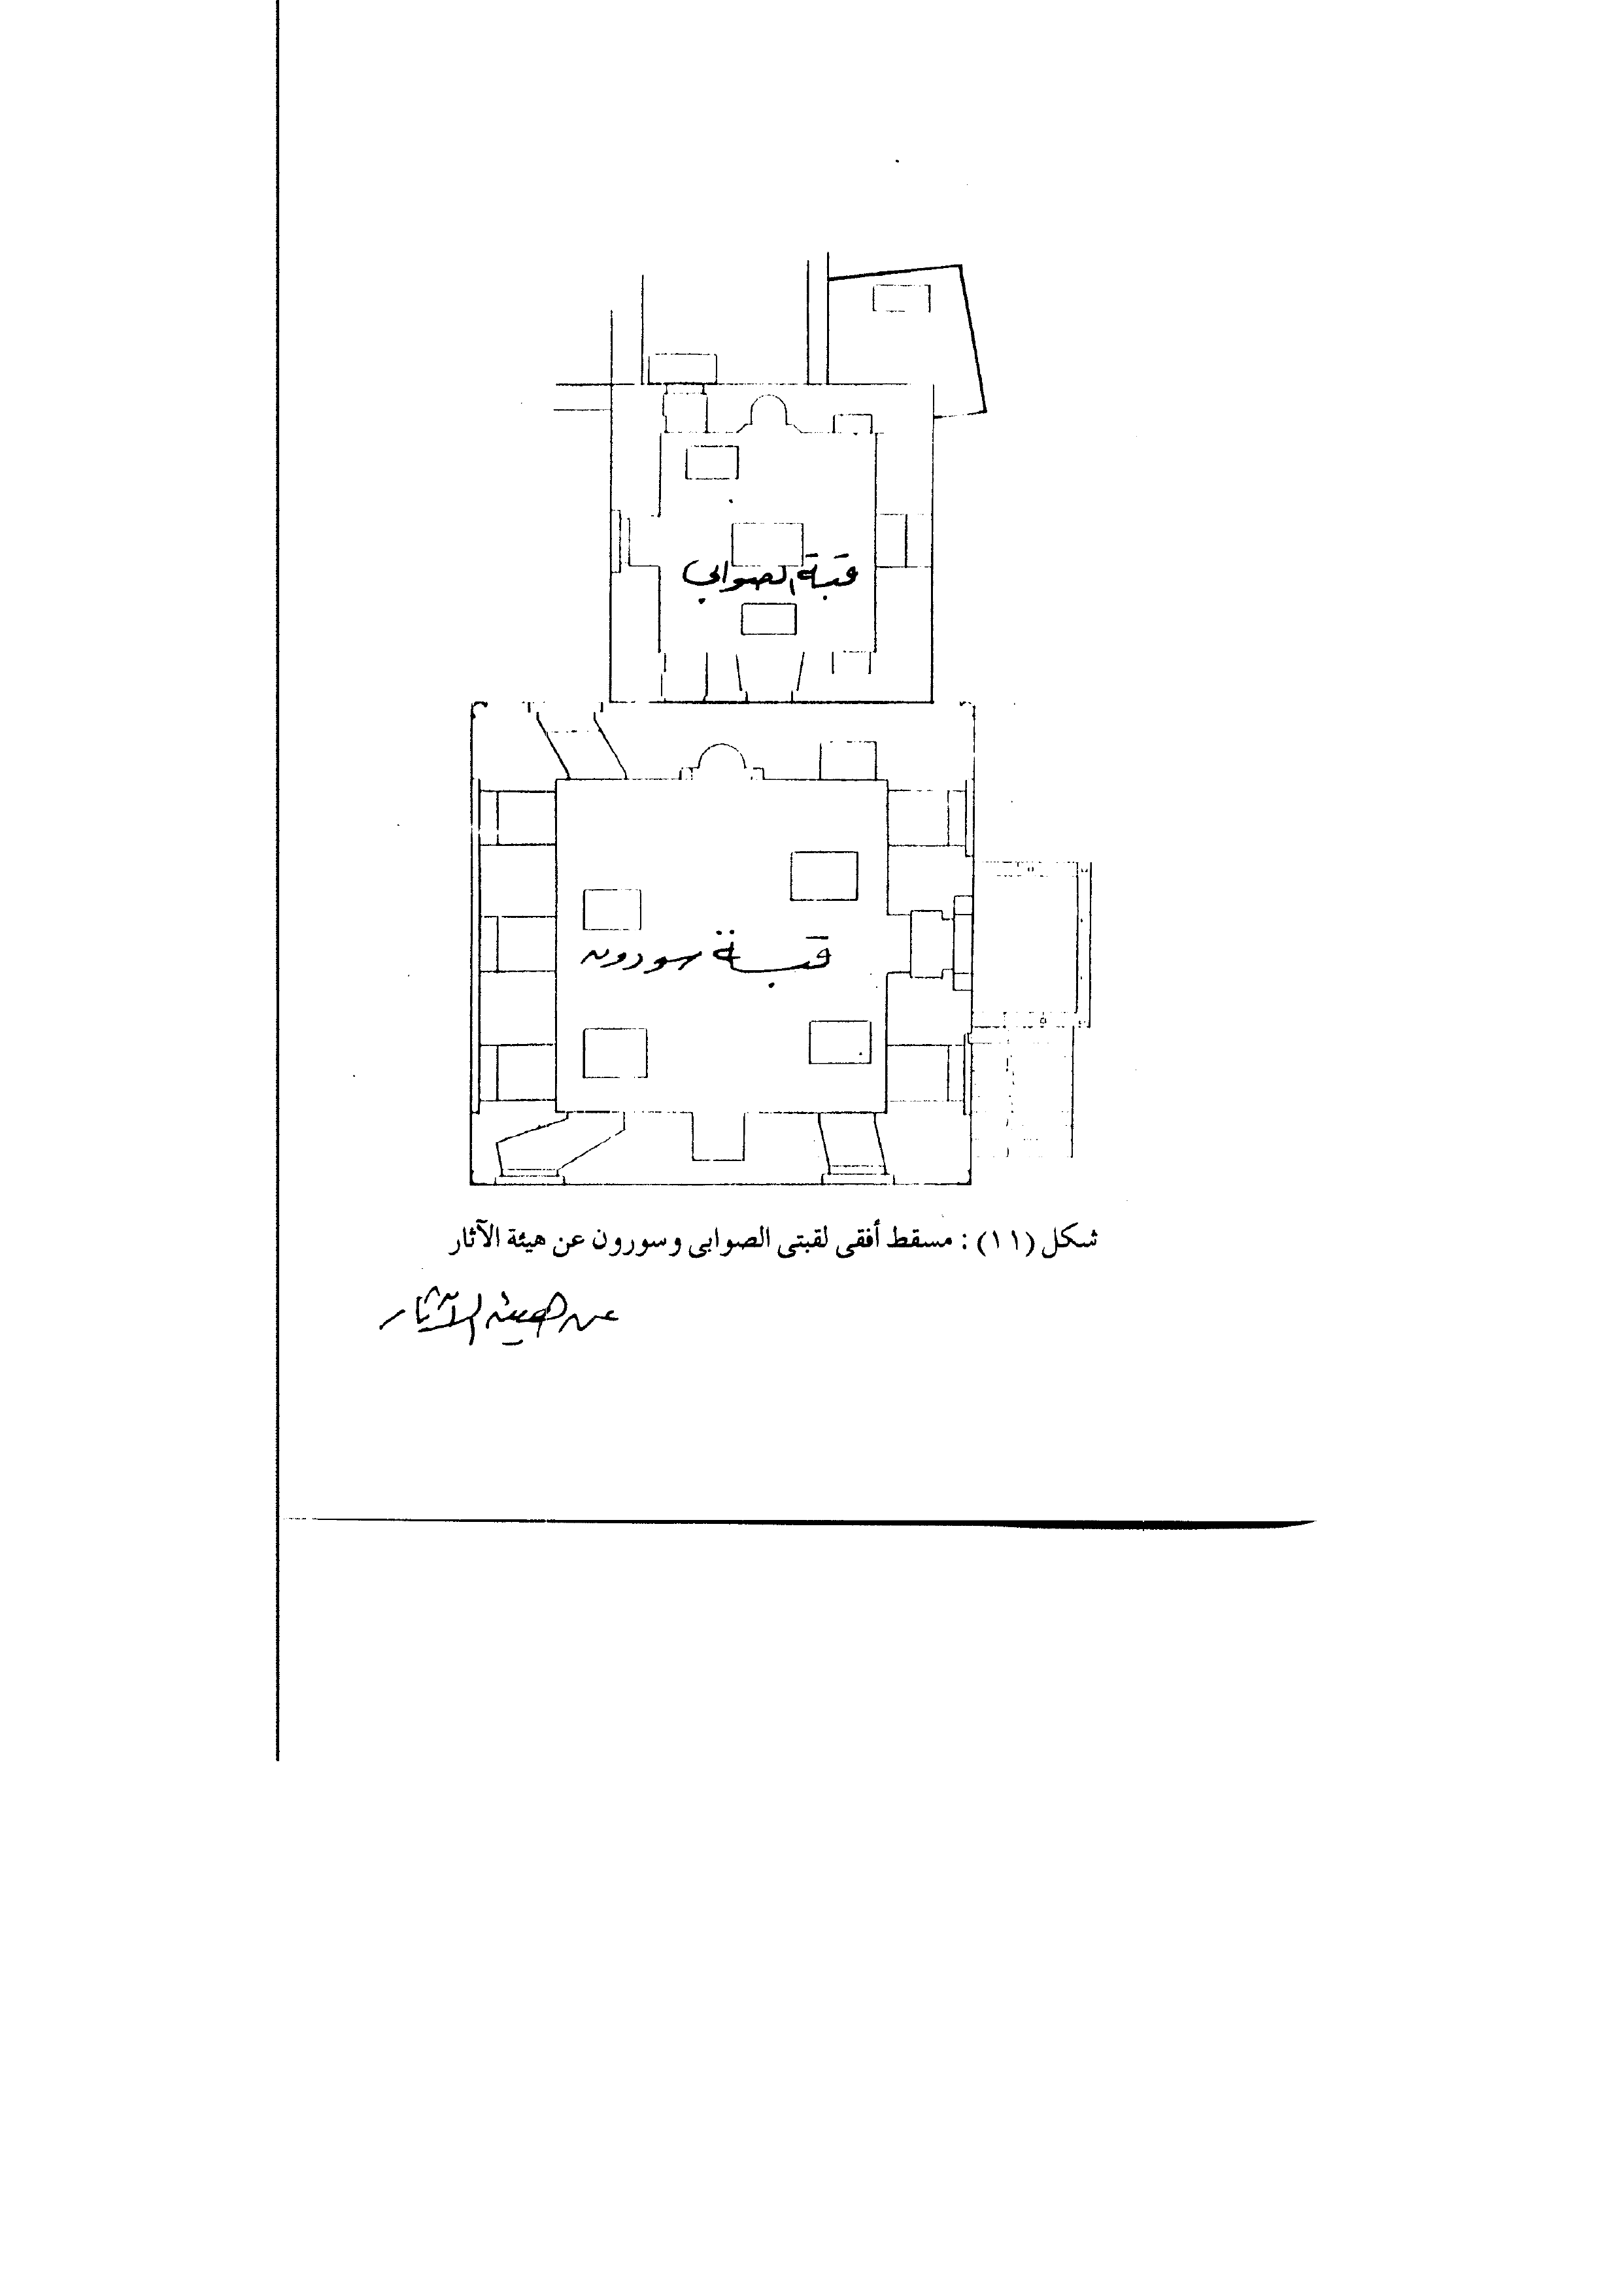 قبة الصوابي
قبة سودون
شكل (١١) : مسقط أفقى لقبتى الصوابى وسورون عن هيئة الآثار
عن هيئة الآثار